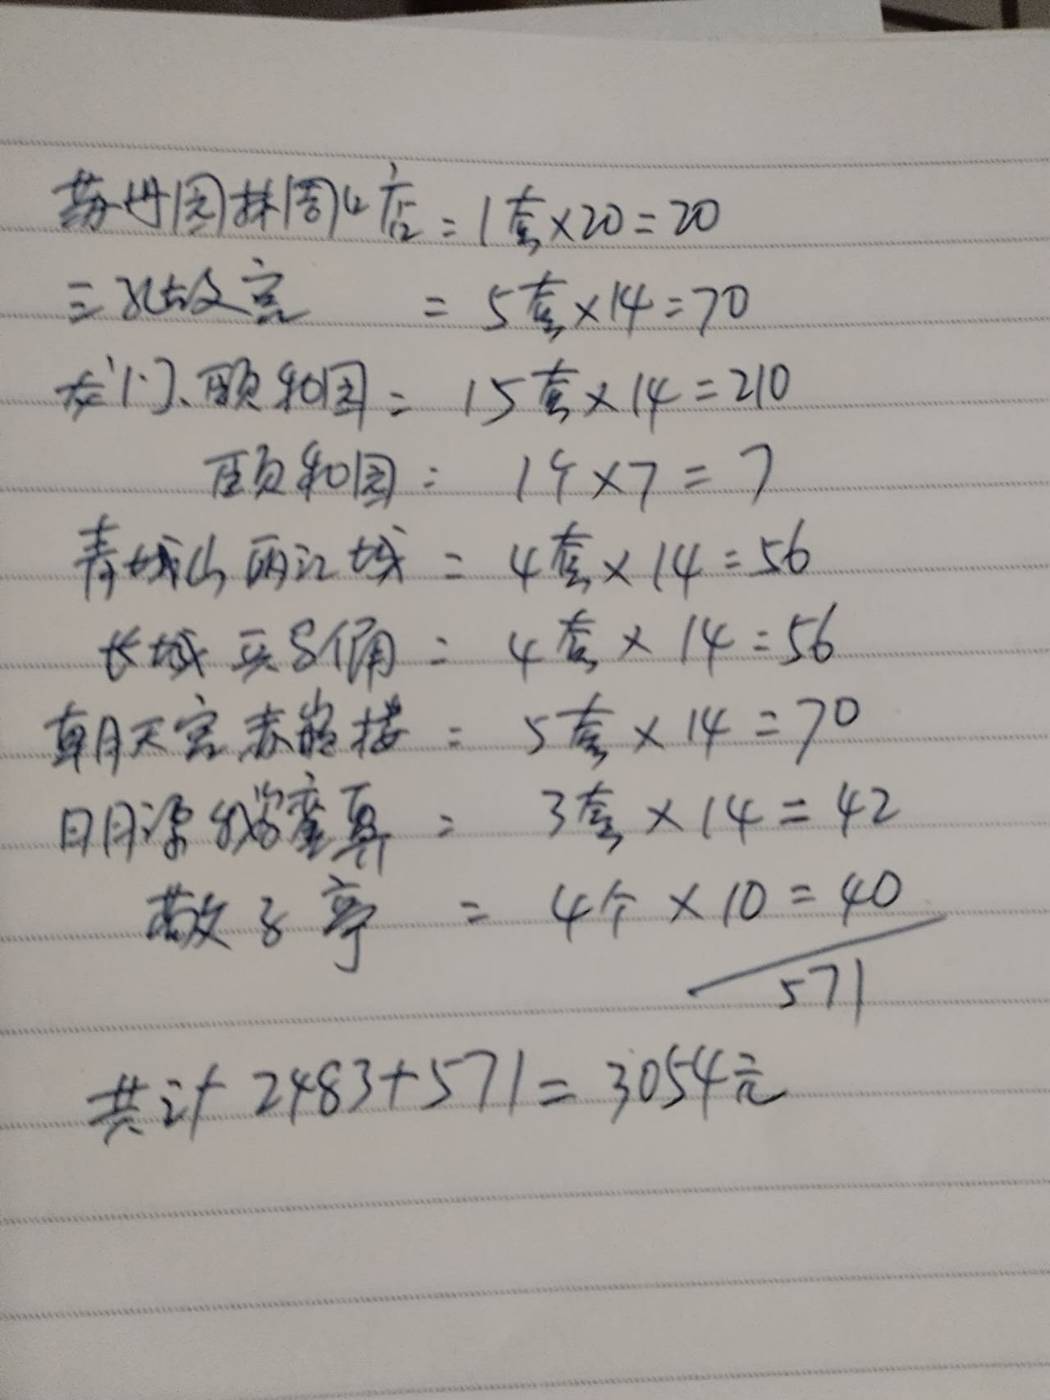 苏州园林周口店=1套×20=20
三孔故宫=5套×14=70
龙门、颐和园=15套×14=210
颐和园=1个×7=7
青城山丽江城=4套×14=56
长城兵马俑=4套×14=56
朝天宫赤嵌楼=5套×14=70
日月潭 鹅銮鼻=3套×14=42
散 亭=4个×10=40
571
共计2483+571=3054元